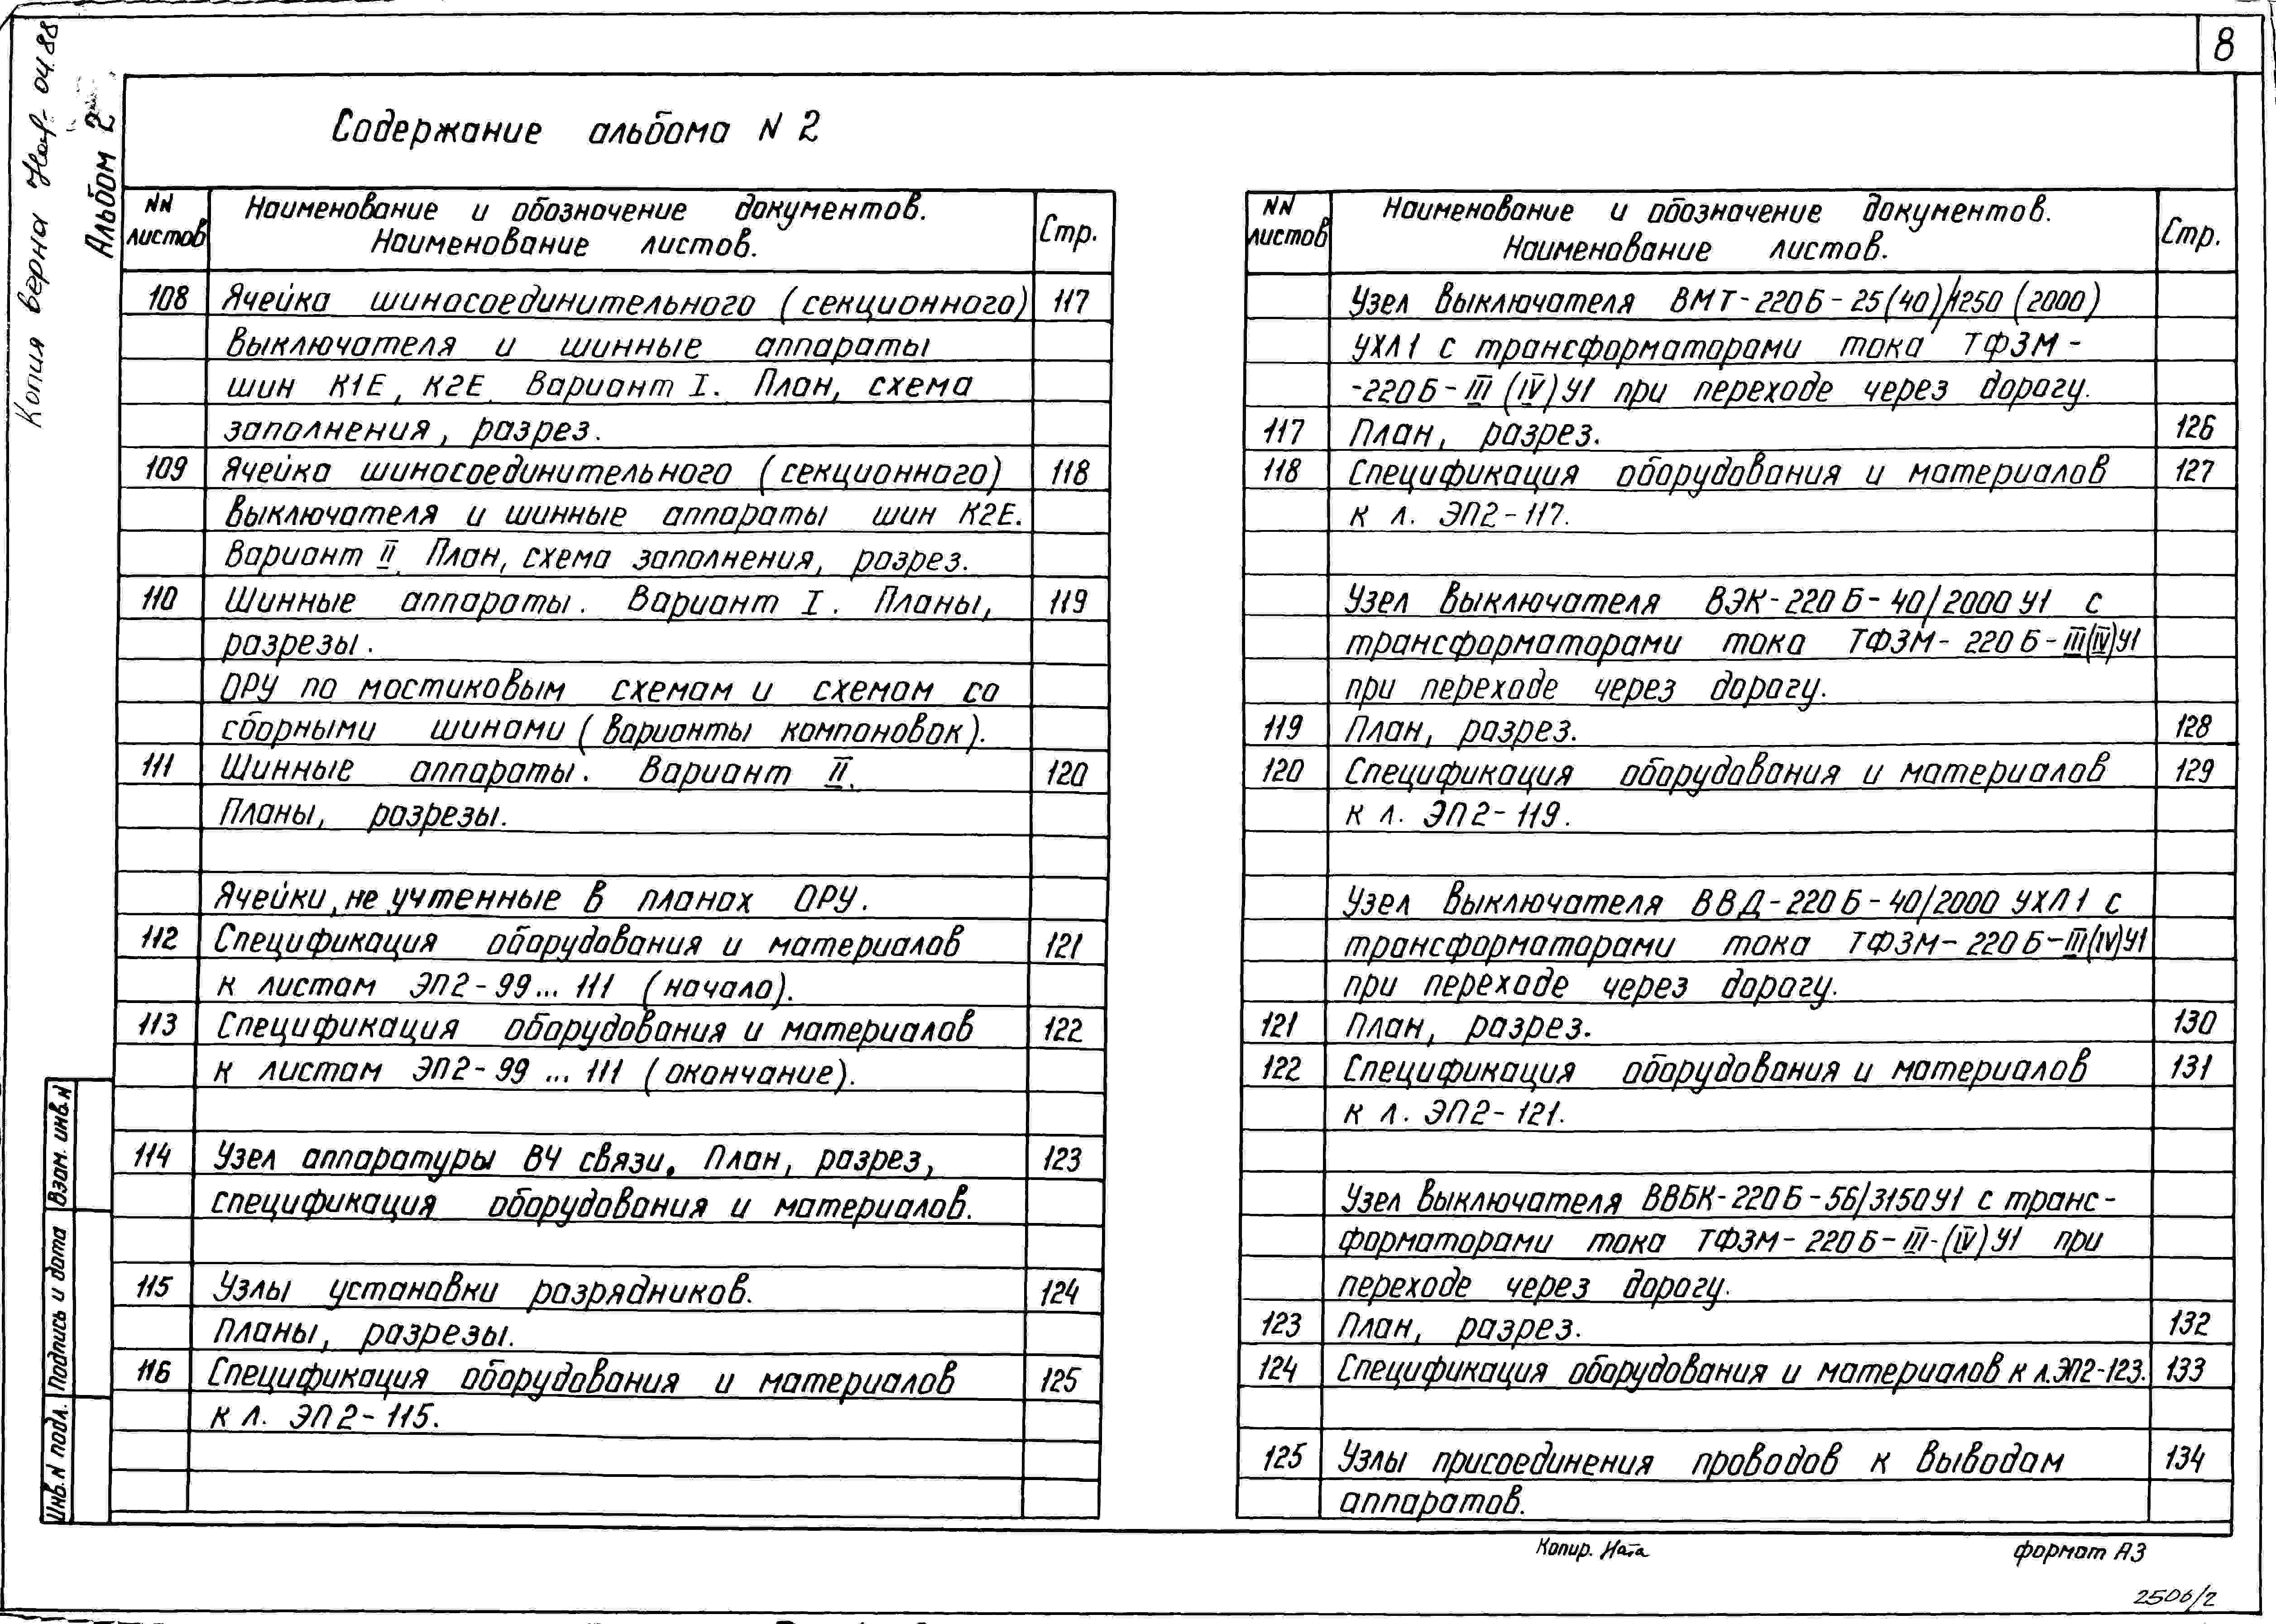 8
Копия верна 04.88
Альбом 2
Содержание альбома N 2
NN листов
Наименование и обозначение документов.
Наименование листов.
Стр.
108 Ячейка шиносоединительного (секционного) 117
выключателя и шинные аппараты
шин К1Е, К2Е. Вариант I. План, схема
заполнения, разрез.
109 Ячейка шиносоединительного (секционного) 118
выключателя и шинные аппараты шин К2Е.
Вариант II. План, схема заполнения, разрез.
110 Шинные аппараты. Вариант I. Планы, 119
разрезы.
ОРУ по мостиковым схемам и схемам со
сборными шинами (варианты компоновок).
111 Шинные аппараты. Вариант II. 120
Планы, разрезы.
Ячейки, не учтенные в планах ОРУ.
112 Спецификация оборудования и материалов 121
к листам ЭП2-99... 111 (начало).
113 Спецификация оборудования и материалов 122
к листам ЭП2-99 ... 111 (окончание).
114 Узел аппаратуры ВЧ связи. План, разрез, 123
спецификация оборудования и материалов.
115 Узлы установки разрядников. 124
Планы, разрезы.
116 Спецификация оборудования и материалов 125
к л. ЭП2-115.
NN листов
Наименование и обозначение документов.
Наименование листов.
Стр.
Узел выключателя ВМТ-220Б-25(40)/1250 (2000)
УХЛ1 с трансформаторами тока ТФЗМ-
-220Б-III (IV) У1 при переходе через дорогу.
117 План, разрез. 126
118 Спецификация оборудования и материалов 127
к л. ЭП2-117.
Узел выключателя ВЭК-220Б-40/2000 У1 с
трансформаторами тока ТФЗМ-220Б-III(IV)У1
при переходе через дорогу.
119 План, разрез. 128
120 Спецификация оборудования и материалов 129
к л. ЭП2-119.
Узел выключателя ВВД-220Б-40/2000 УХЛ1 с
трансформаторами тока ТФЗМ-220Б-III(IV)У1
при переходе через дорогу.
121 План, разрез. 130
122 Спецификация оборудования и материалов 131
к л. ЭП2-121.
Узел выключателя ВВБК-220Б-56/3150У1 с транс-
форматорами тока ТФЗМ-220Б-III-(IV) У1 при
переходе через дорогу.
123 План, разрез. 132
124 Спецификация оборудования и материалов к л.ЭП2-123. 133
125 Узлы присоединения проводов к выводам 134
аппаратов.
Взам. инв.N
Подпись и дата
Инв.N подл.
Копир. Ната
формат А3
2506/2